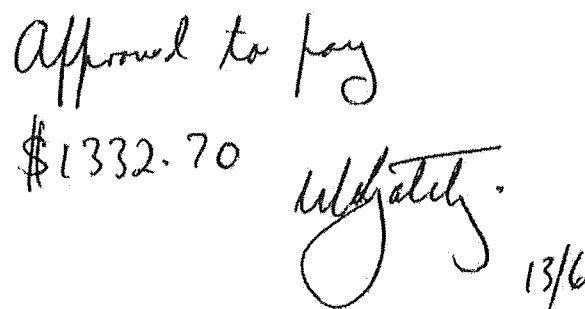 Approved to pay
$1332.70
13/6